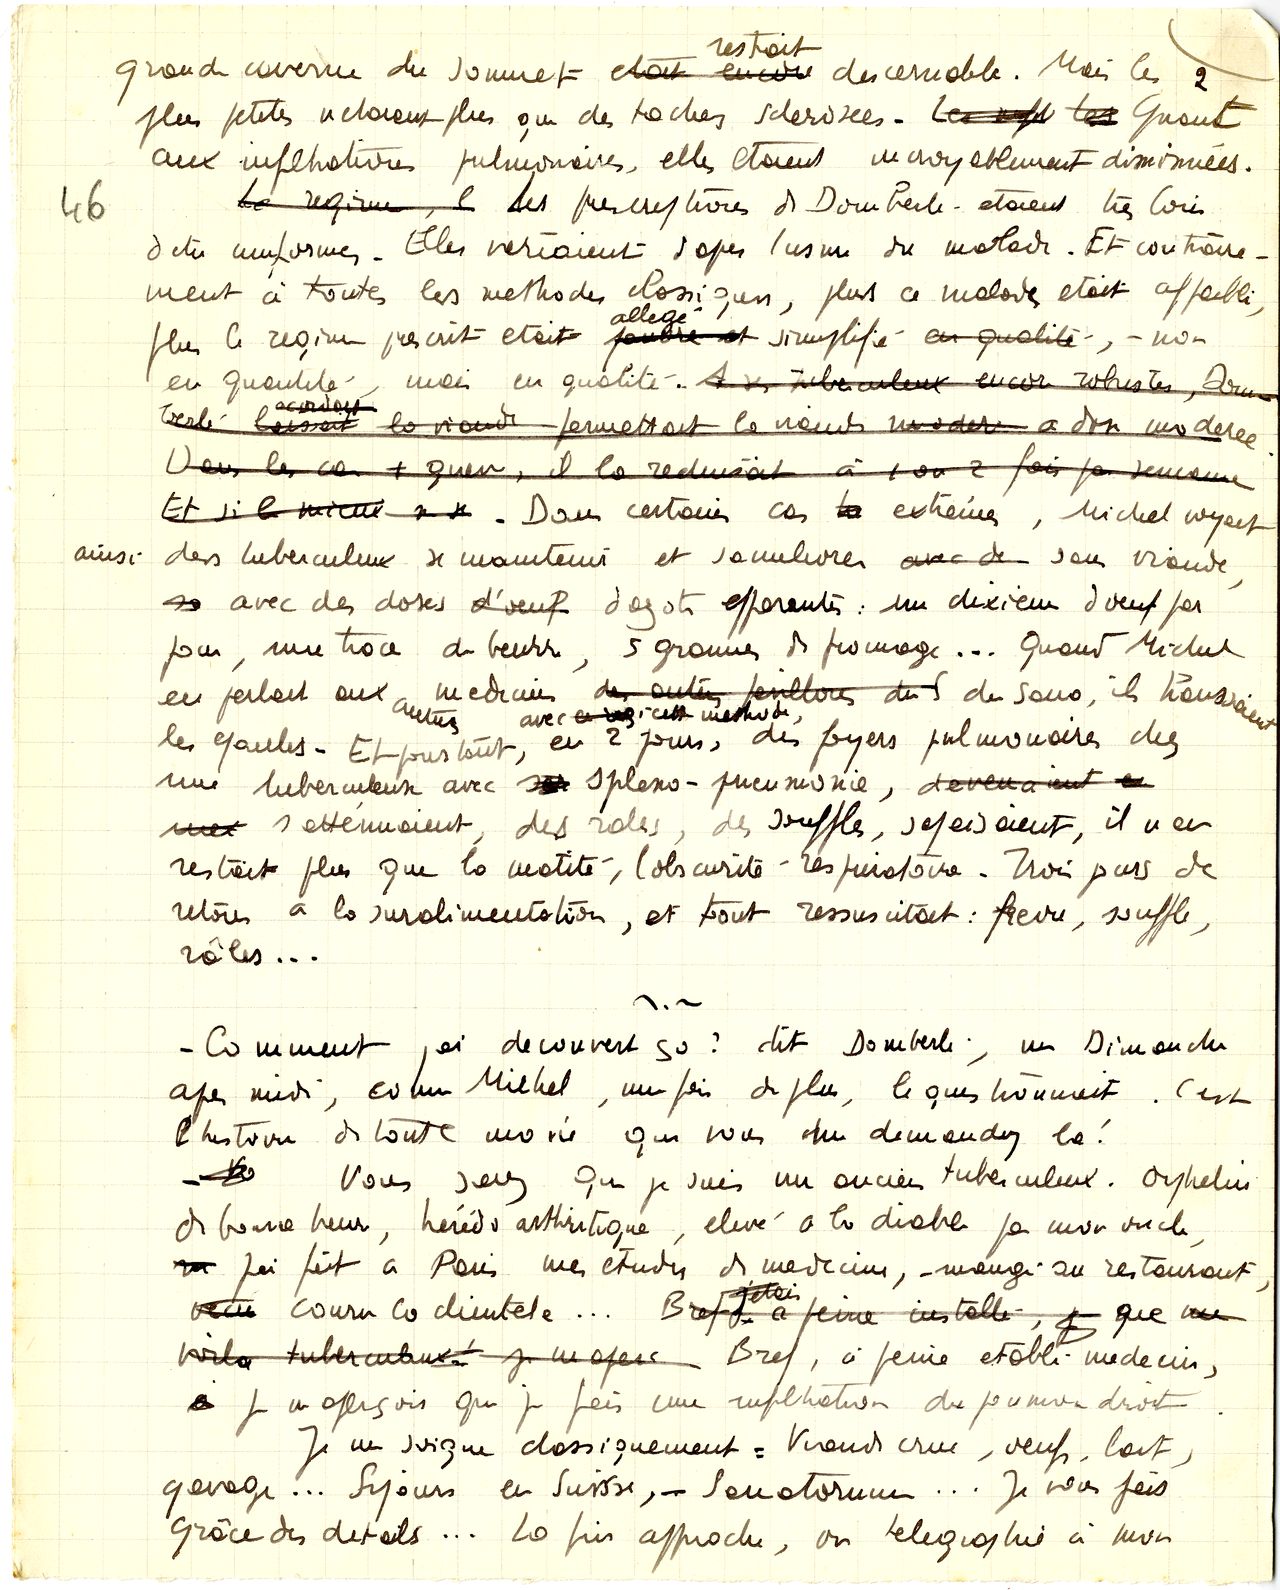 restait
grande caverne du sommet était encore descernable. Mais les 2
plus petites n'etaient plus que des taches sclerosées. Les les Quant
aux infiltrations pulmonaires, elles etaient incroyablement diminuées.
46 Le regime, l Les prescriptions de Domberlé etaient très loin
d'etre uniformes. Elles variaient d'apres l'usure du malade. Et contraire-
ment à toutes les methodes classiques, plus ce malade etait affaibli,
allegé
plus le regime prescrit etait pauvre et simplifié en qualité, - non
en quantité, mais en qualité. A x. tuberculeux encore robustes, Dom-
accordait
berlé laissait la viande permettait la viande modere a dose moderee
Dans les cas + graves, il la reduisait à 1 ou 2 fois par semaine
Et si le mieux x x . Dans certains cas la extrêmes, Michel voyait
ainsi des tuberculeux se maintenir et s'ameliorer avec de sans viande,
so avec des doses d'oeuf d'azote effarantes : un dixieme d'oeuf par
jour, une trace de beurre, 5 grammes de fromage... Quand Michel
en parlait aux medecins des autres pavillons du S du Sana, ils haussaient
autres avec cette methode,
les epaules. Et pourtant, en 2 jours, des foyers pulmonaires chez
une tuberculeuse avec spleno-pneumonie, devenaient
s'atténuaient, des rales, des souffles, s'apaisaient, il n'en
restait plus que la matité, l'obscurité respiratoire. Trois jours de
retour à la suralimentation, et tout ressuscitait : fievre, souffle,
râles...
~.~
- Comment j'ai decouvert ça ? dit Domberlé, un Dimanche
apres midi, comme Michel, une fois de plus, le questionnait. C'est
l'histoire de toute ma vie que vous me demandez la !
- Vous savez que je suis un ancien tuberculeux. Orphelin
de bonne heure, hérédo arthritique, elevé a la diable par mon oncle,
j'ai fait a Paris mes etudes de medecine, - mangé au restaurant,
j'etais
vecu couru la clientele... Bref j. a peine installé, que me
voila tuberculeux ! je m'aperc Bref, à peine etabli medecin,
à je m'aperçois que je fais une infiltration du poumon droit.
Je me soigne classiquement = Viande crue, oeufs, lait,
gavage... Sejours en Suisse, - Sanatorium... Je vous fais
grâce des details... La fin approche, on telegraphie à mon